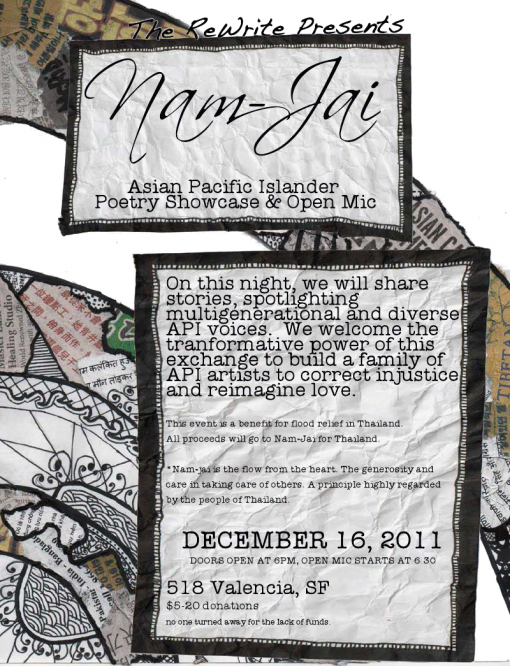 The ReWrite Presents
Nam-Jai
Asian Pacific Islander
Poetry Showcase & Open Mic
On this night, we will share
stories, spotlighting
multigenerational and diverse
API voices. We welcome the
tranformative power of this
exchange to build a family of
API artists to correct injustice
and reimagine love.
This event is a benefit for flood relief in Thailand.
All proceeds will go to Nam-Jai for Thailand.
*Nam-jai is the flow from the heart. The generosity and
care in taking care of others. A principle highly regarded
by the people of Thailand.
DECEMBER 16, 2011
DOORS OPEN AT 6PM, OPEN MIC STARTS AT 6 30
518 Valencia, SF
$5-20 donations
no one turned away for the lack of funds
Healing Studio